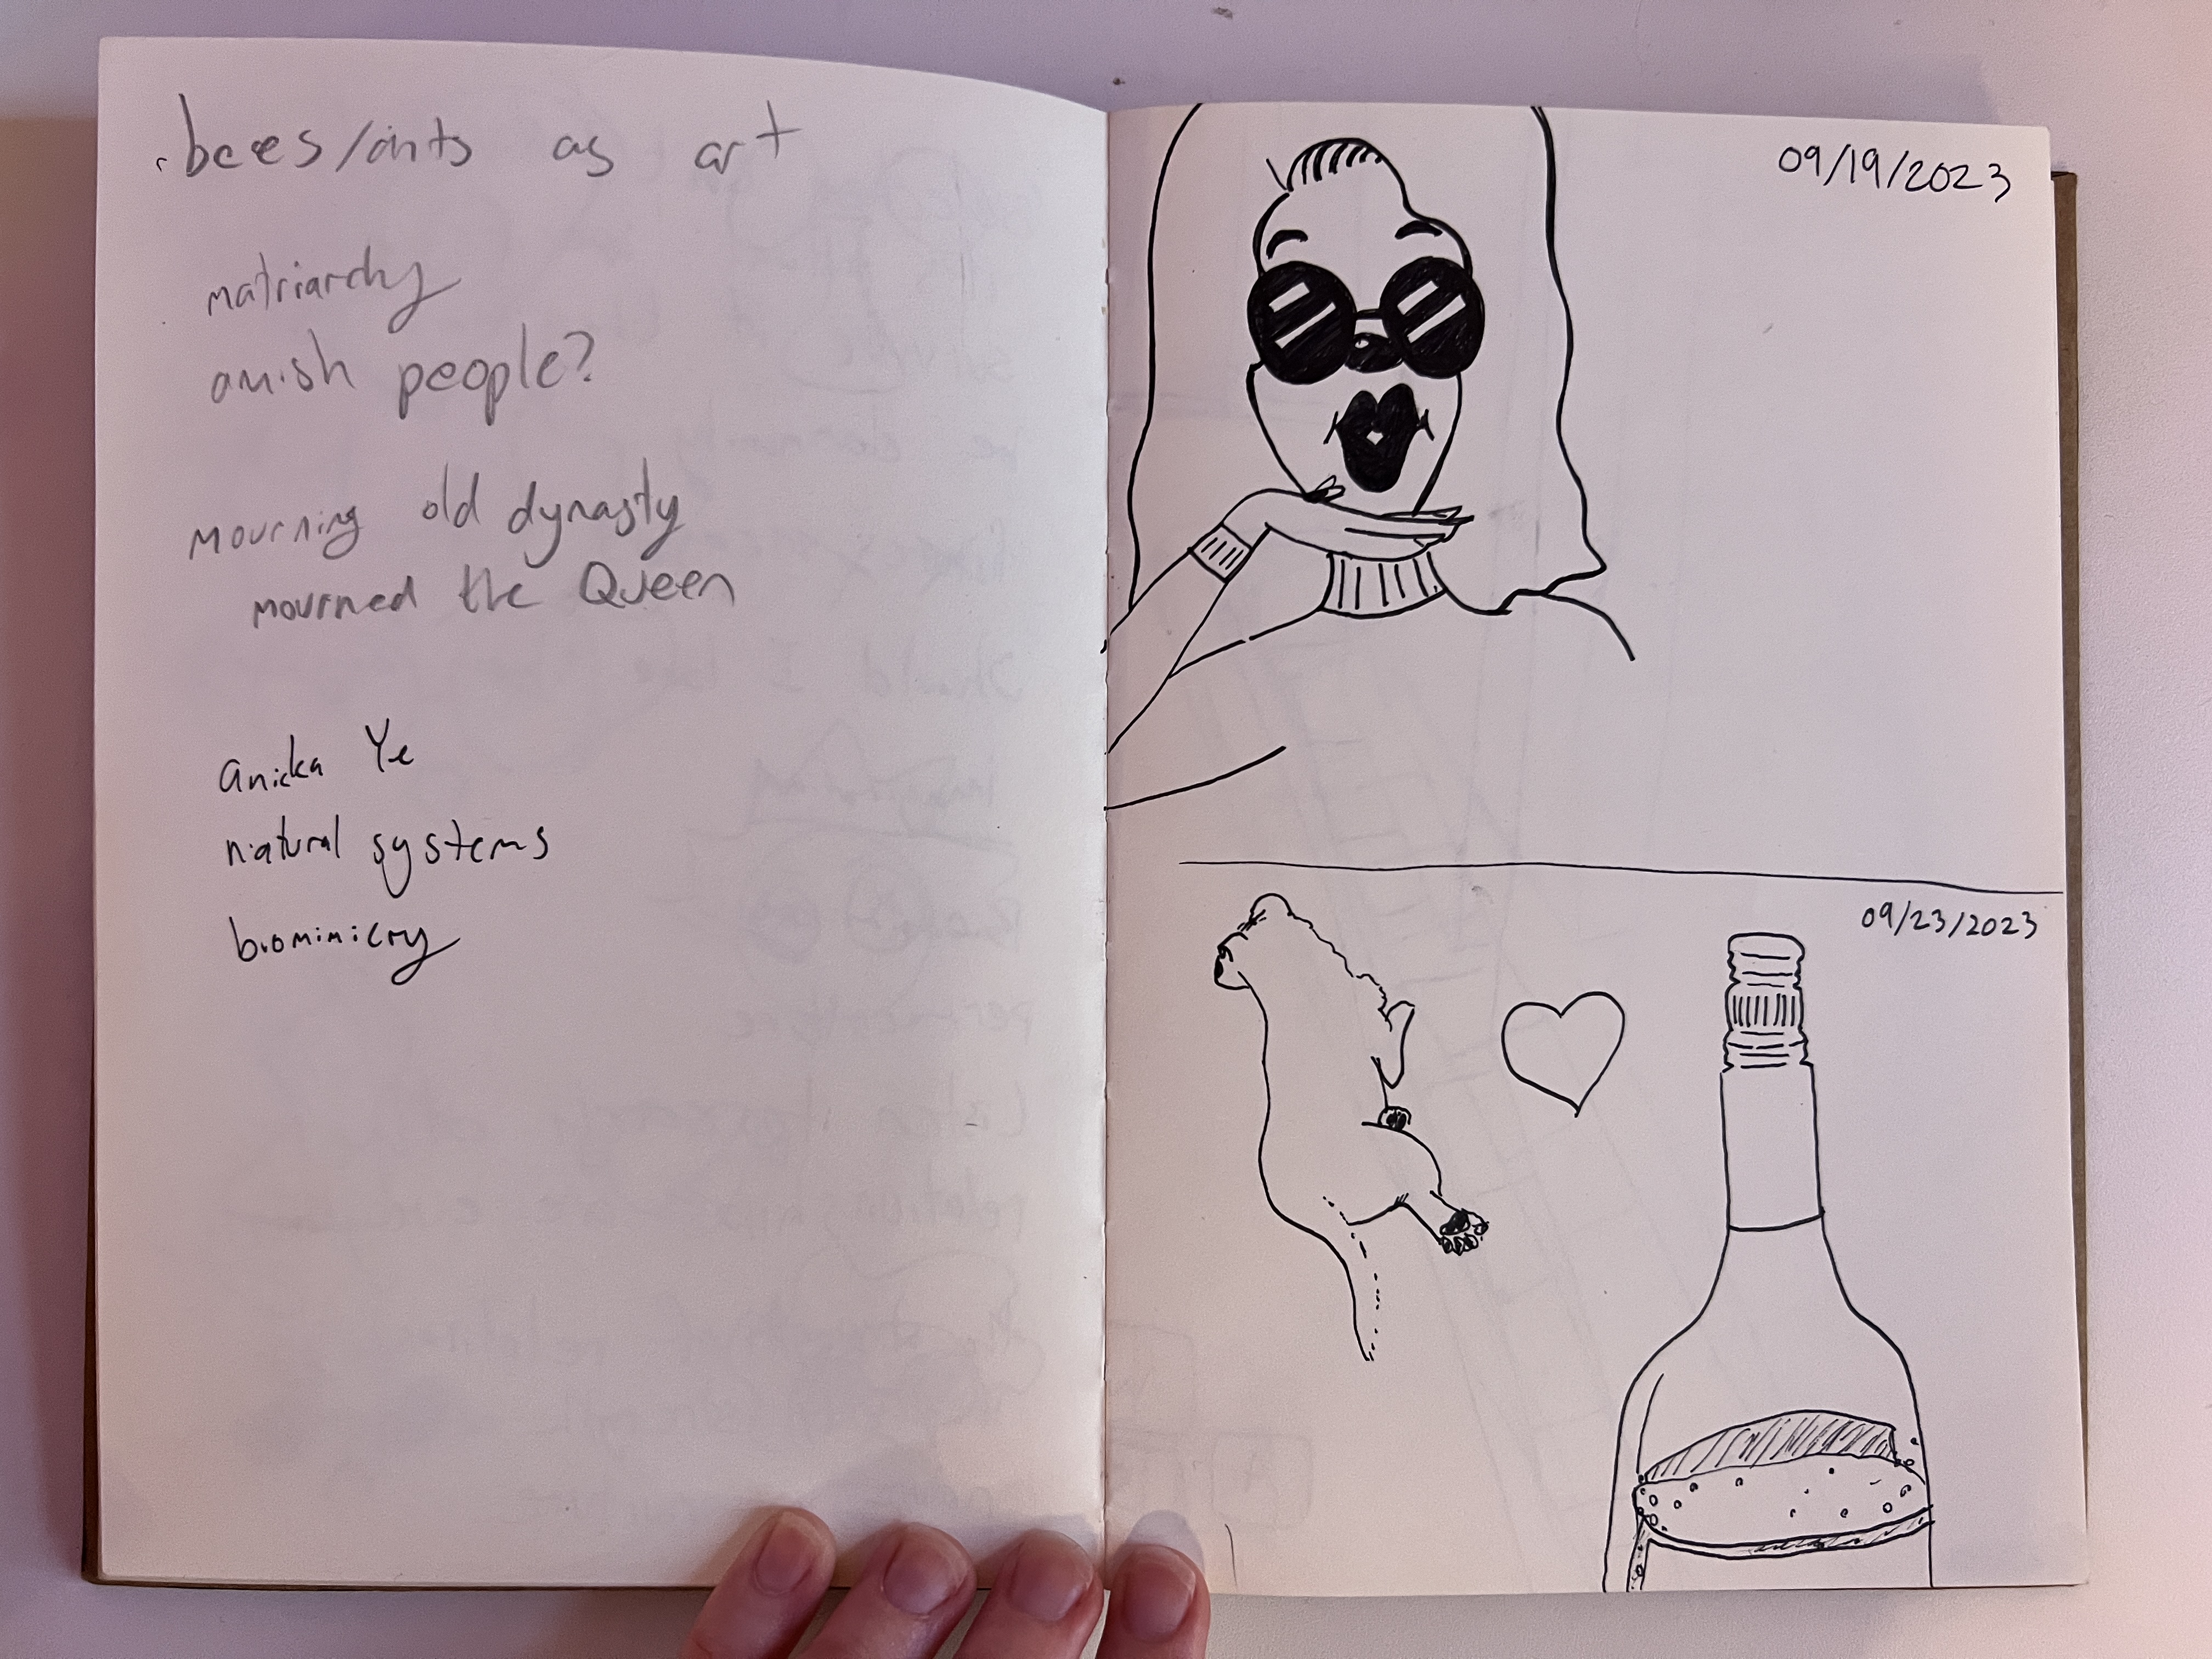 bees/ants as art
matriarchy
amish people?
mourning old dynasty
mourned the Queen
anicka Ye
natural systems
biomimicry
09/19/2023
09/23/2023